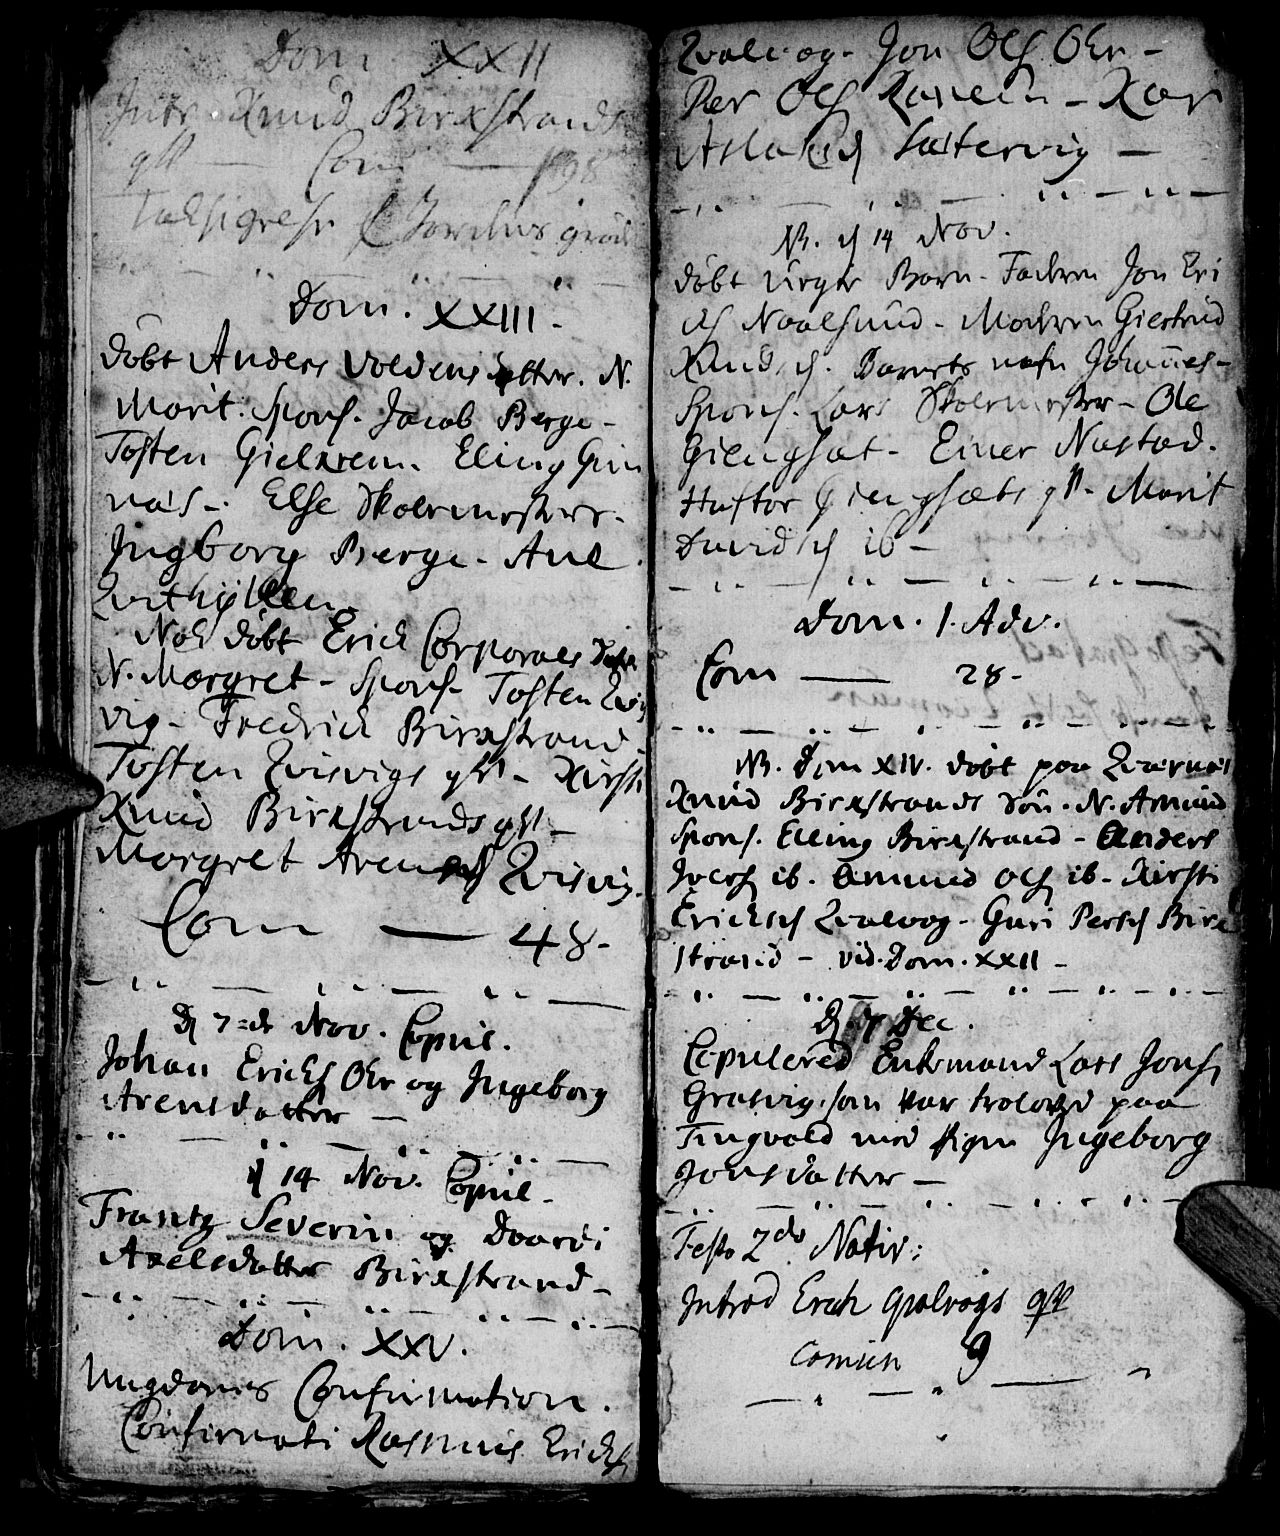 Dom XXII
Intr. Knud Birkstrands
qu — Com — 198
Dom. XXIII.
døbt Anders Voldens datter. N.
Marit. Spons. Jacob Berge -
Tosten Gielkrem. Eling Gim
næs -. Else Skolemesters.
Ingborg Berge - Ane
Qvithyllen.
Nok døbt Erick Corporals datter
N. Margret - Spons. Tosten Qvis
vig - Fredrick Birkstrand.
Tosten Qvisvigs qu - Kirsti
Knud Birkstrands qu -
Margret Arens Qvisvig.
Com — 48 -
d 7de Nov. Copul.
Johan Ericks Ohr og Ingeborg
Arensdatter -
d 14 Nov. Copul -
Frantz Severin og Doardi
Axelsdatter Birkstrand -
Dom. XXV.
Ungdomes Confirmation.
Confirmati Rasmus Ericks
Qvalvog - Jon Ols Ohr -
Per Ols Ranem - Kar
Aslaksd Sætervig -
NB. d 14 Nov.
døbt uegte Barn - Fadren Jon Eri
chs Naalsund - Modren Giertrud
Knudsd. Barnets nafn Johannes -
Spons. Lars Skolemester - Ole
Giengsæt - Einer Nastad.
Hustor Giengsæts qu - Marit
Davidsd ib -
Dom. 1. Adv.
Com — 28 -
NB. Dom XIV. døbt paa Qværnæs
Knud Birkstrands Søn. N. Amund
Spons. Elling Birkstrand - Anders
Ivers ib. Amund Ols ib - Kirsti
Ericksd Qvalvog - Guri Persd Birk
strand - vid. Dom. XXII -
d. 7 Dec.
Copulered Enkemand Lars Jons,
Grasvig, som var trolovd paa
Tingvold med Pigen Ingeborg
Jonsdatter -
Festo 2de Nativ:
Introd Erich Qvalvogs qu
Comun 9